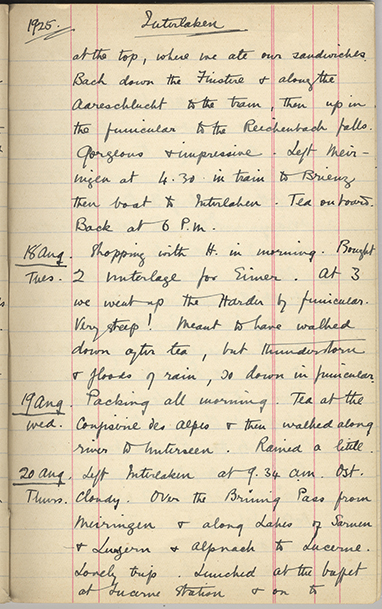 1925. Interlaken
at the top, where we ate our sandwiches.
Back down the Finstere & along the
Aareschlucht to the train, then up in
the funicular to the Reichenbach falls.
Gorgeous & impressive. Left Meir-
ingen at 4.30 in train to Brienz
then boat to Interlaken. Tea on board.
Back at 6 P.M.
18 Aug. Shopping with H. in morning. Bought
Tues. 2 for Eimer. At 3
we went up the Harder by funicular.
Very steep! Meant to have walked
down after tea, but thunderstorm
& floods of rain, so down in funicular.
19 Aug. Packing all morning. Tea at the
Wed. des Alpes & then walked along
river to Unterseen. Rained a little.
20 Aug. Left Interlaken at 9.34 a.m. Ost.
Thurs. Cloudy. Over the Brünig Pass from
Meiringen & along Lakes of Sarnen
& Lungern & Alpnach to Lucerne.
Lovely trip. Lunched at the buffet
at Lucerne Station & on to